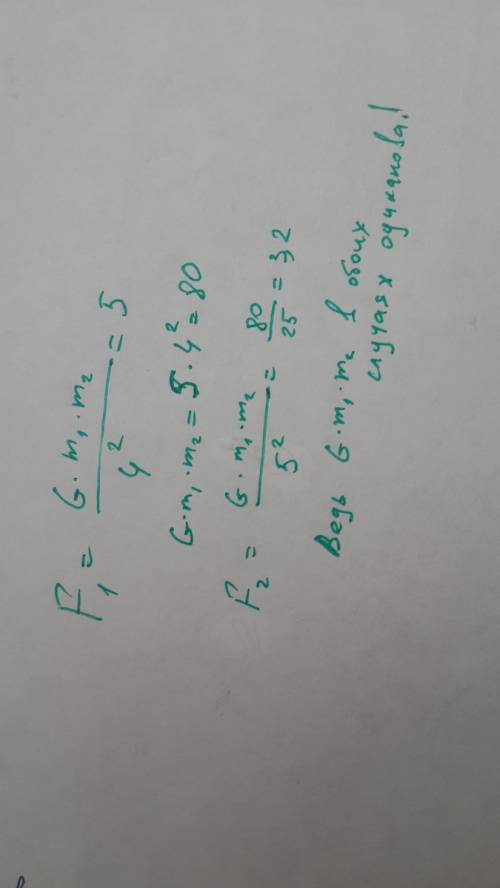 F₁ = G·m₁·m₂ / 4² = 5
G·m₁·m₂ = 5·4² = 80
F₂ = G·m₁·m₂ / 5² = 80 / 25 = 32
Ведь G·m₁·m₂ в обоих
случаях одинаковы!